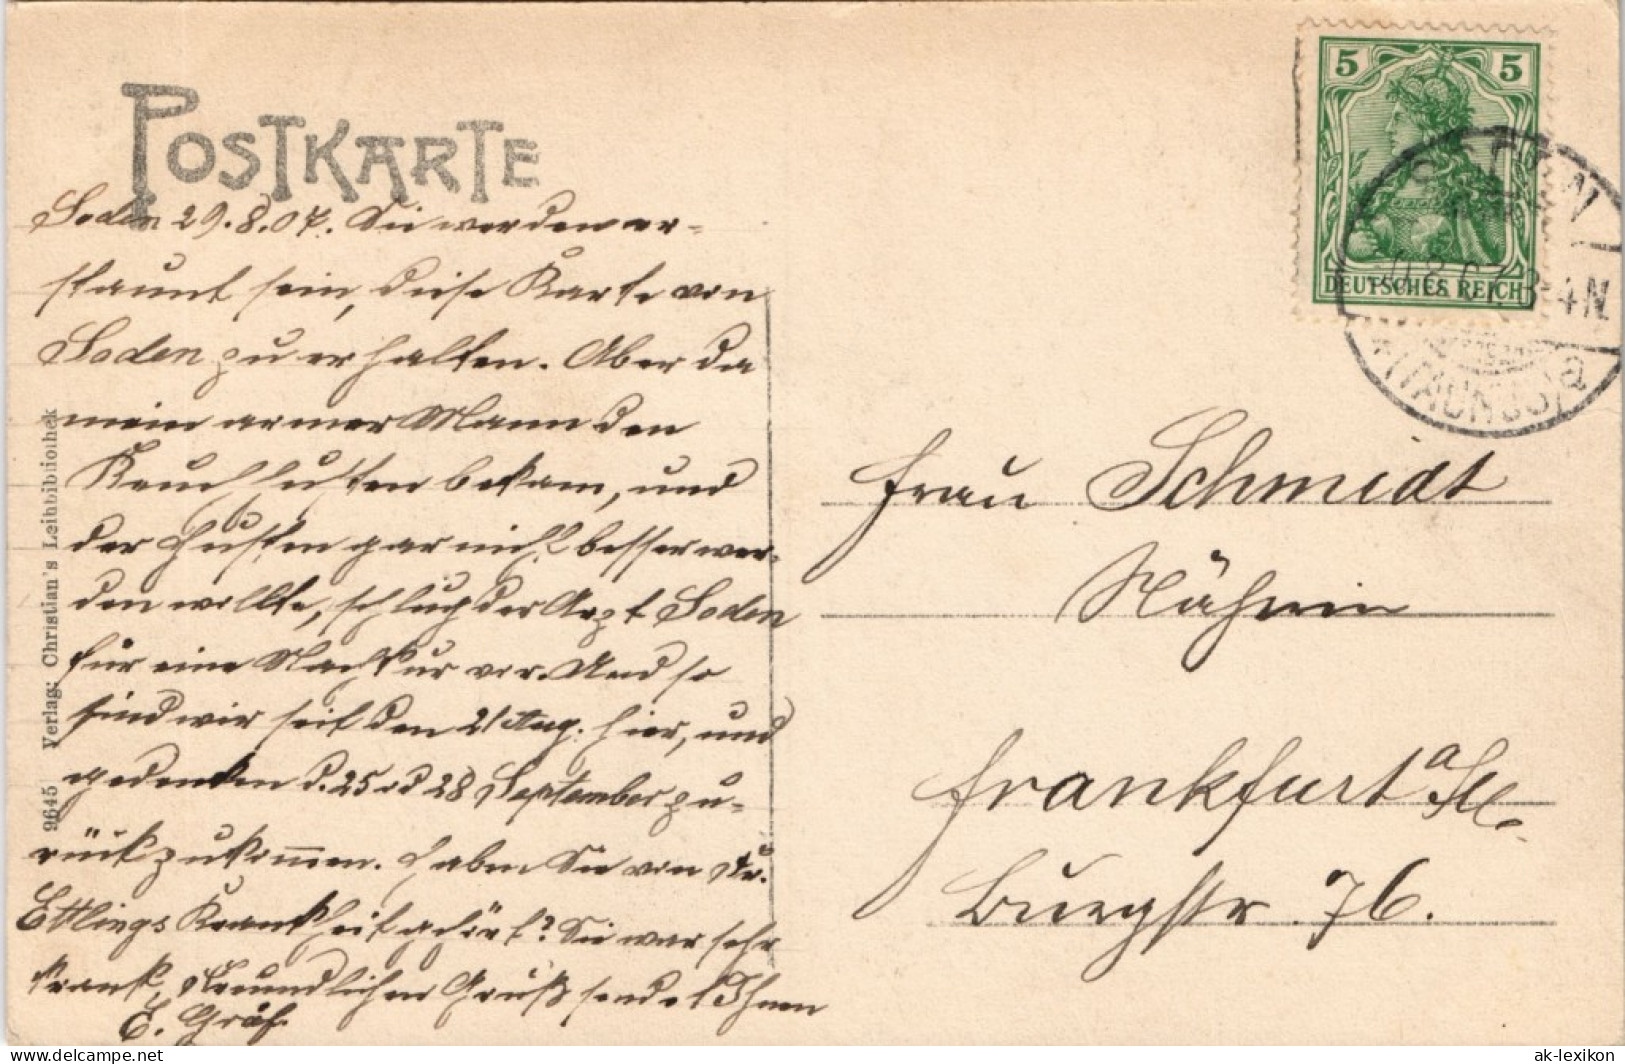 POSTKARTE
Soden 29.8.07. Sie werden er-
staunt sein, diese Karte von
Soden zu erhalten. Aber da
mein armer Mann den
Keuchhusten bekam, und
der Husten gar nicht besser wer-
den wollte, schlug der Arzt Soden
für eine Nachkur vor. Und so
sind wir seit den 21 Aug. hier, und
gedenken d. 25 od 28 September zu-
rückzukommen. Haben Sie von Fr.
Ettlings Krankheit gehört? Sie war sehr
krank. Freundlichen Gruß sendet Ihnen
E. Gräf
9645 Verlag: Christian's Leihbibliothek
5 5
DEUTSCHES REICH
SODEN
8.07. 3-4N
*(TAUNUS) a
Frau Schmidt
Näherin
Frankfurt a M.
Burgstr. 76.
delcampe.net
ak-lexikon